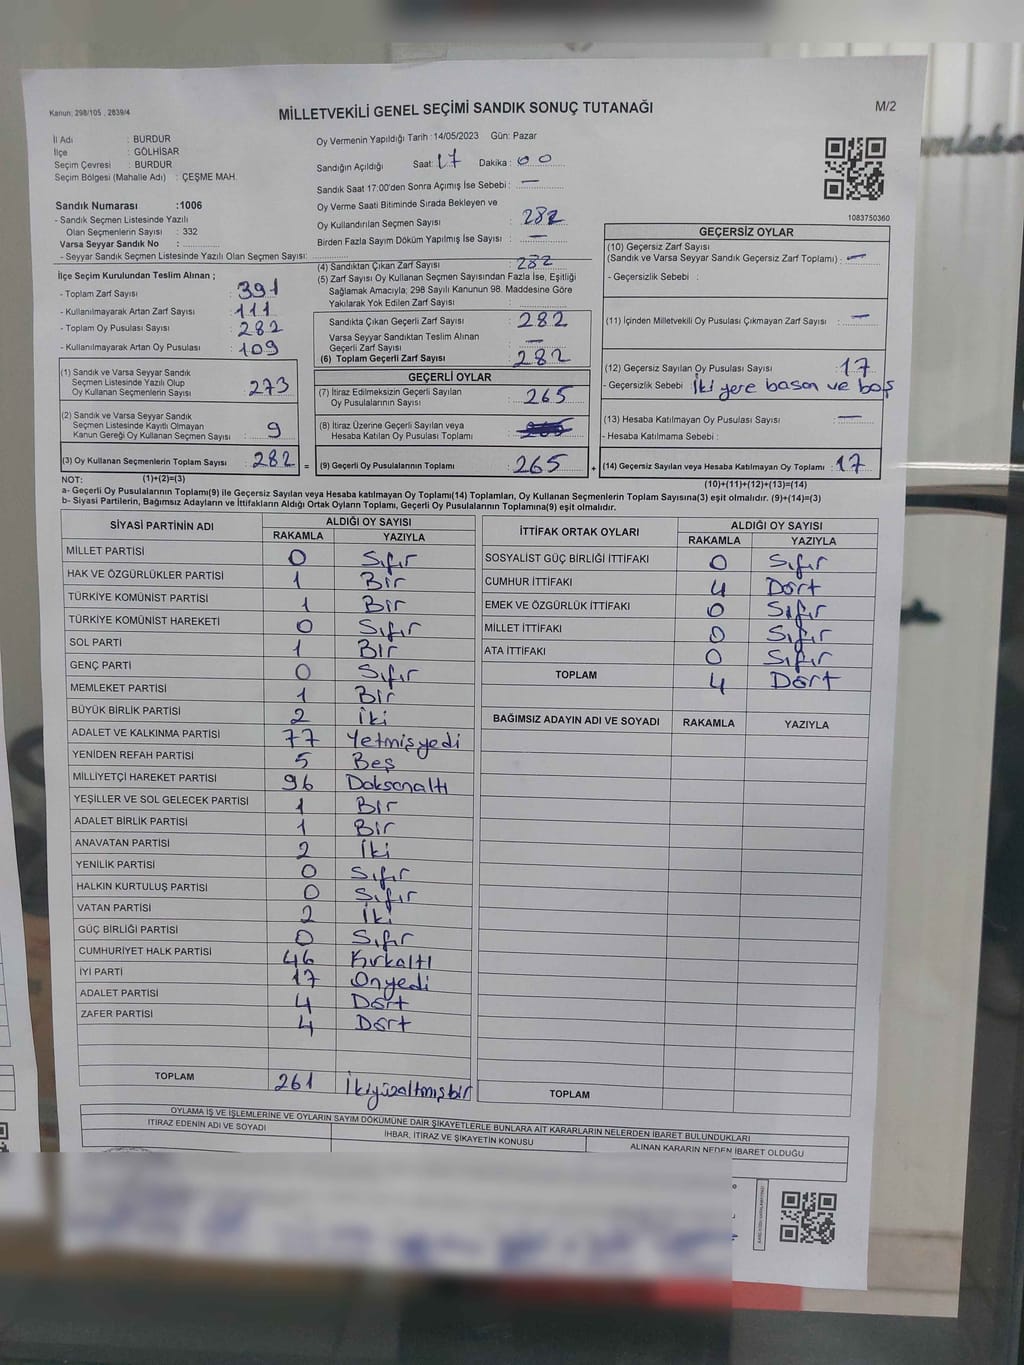 Kanun; 298/105 , 2839/4
MİLLETVEKİLİ GENEL SEÇİMİ SANDIK SONUÇ TUTANAĞI
M/2
İl Adı : BURDUR
İlçe : GÖLHİSAR
Seçim Çevresi : BURDUR
Seçim Bölgesi (Mahalle Adı) : ÇEŞME MAH.
Sandık Numarası :1006
- Sandık Seçmen Listesinde Yazılı
Olan Seçmenlerin Sayısı : 332
Varsa Seyyar Sandık No :
- Seyyar Sandık Seçmen Listesinde Yazılı Olan Seçmen Sayısı:
Oy Vermenin Yapıldığı Tarih :14/05/2023 Gün: Pazar
Sandığın Açıldığı Saat: 17 Dakika : 00
Sandık Saat 17:00'den Sonra Açımış İse Sebebi : —
Oy Verme Saati Bitiminde Sırada Bekleyen ve
Oy Kullandırılan Seçmen Sayısı : 282
Birden Fazla Sayım Döküm Yapılmış İse Sayısı : —
1083750360
İlçe Seçim Kurulundan Teslim Alınan ;
- Toplam Zarf Sayısı : 391
- Kullanılmayarak Artan Zarf Sayısı : 111
- Toplam Oy Pusulası Sayısı : 282
- Kullanılmayarak Artan Oy Pusulası : 109
(1) Sandık ve Varsa Seyyar Sandık
Seçmen Listesinde Yazılı Olup
Oy Kullanan Seçmenlerin Sayısı : 273
(2) Sandık ve Varsa Seyyar Sandık
Seçmen Listesinde Kayıtlı Olmayan
Kanun Gereği Oy Kullanan Seçmen Sayısı : 9
(3) Oy Kullanan Seçmenlerin Toplam Sayısı : 282 =
(4) Sandıktan Çıkan Zarf Sayısı : 282
(5) Zarf Sayısı Oy Kullanan Seçmen Sayısından Fazla İse, Eşitliği
Sağlamak Amacıyla; 298 Sayılı Kanunun 98. Maddesine Göre
Yakılarak Yok Edilen Zarf Sayısı :
Sandıkta Çıkan Geçerli Zarf Sayısı : 282
Varsa Seyyar Sandıktan Teslim Alınan
Geçerli Zarf Sayısı : —
(6) Toplam Geçerli Zarf Sayısı : 282
GEÇERLİ OYLAR
(7) İtiraz Edilmeksizin Geçerli Sayılan
Oy Pusulalarının Sayısı : 265
(8) İtiraz Üzerine Geçerli Sayılan veya
Hesaba Katılan Oy Pusulası Toplamı :
(9) Geçerli Oy Pusulalarının Toplamı : 265 +
GEÇERSİZ OYLAR
(10) Geçersiz Zarf Sayısı
(Sandık ve Varsa Seyyar Sandık Geçersiz Zarf Toplamı) : —
- Geçersizlik Sebebi :
(11) İçinden Milletvekili Oy Pusulası Çıkmayan Zarf Sayısı : —
(12) Geçersiz Sayılan Oy Pusulası Sayısı : 17
- Geçersizlik Sebebi : İki yere basan ve boş
(13) Hesaba Katılmayan Oy Pusulası Sayısı : —
- Hesaba Katılmama Sebebi :
(14) Geçersiz Sayılan veya Hesaba Katılmayan Oy Toplamı : 17
NOT: (1)+(2)=(3)
(10)+(11)+(12)+(13)=(14)
a- Geçerli Oy Pusulalarının Toplamı(9) ile Geçersiz Sayılan veya Hesaba katılmayan Oy Toplamı(14) Toplamları, Oy Kullanan Seçmenlerin Toplam Sayısına(3) eşit olmalıdır. (9)+(14)=(3)
b- Siyasi Partilerin, Bağımsız Adayların ve İttifakların Aldığı Ortak Oyların Toplamı, Geçerli Oy Pusulalarının Toplamına(9) eşit olmalıdır.
SİYASİ PARTİNİN ADI ALDIĞI OY SAYISI
RAKAMLA YAZIYLA
MİLLET PARTİSİ 0 Sıfır
HAK VE ÖZGÜRLÜKLER PARTİSİ 1 Bir
TÜRKİYE KOMÜNİST PARTİSİ 1 Bir
TÜRKİYE KOMÜNİST HAREKETİ 0 Sıfır
SOL PARTİ 1 Bir
GENÇ PARTİ 0 Sıfır
MEMLEKET PARTİSİ 1 Bir
BÜYÜK BİRLİK PARTİSİ 2 İki
ADALET VE KALKINMA PARTİSİ 77 Yetmişyedi
YENİDEN REFAH PARTİSİ 5 Beş
MİLLİYETÇİ HAREKET PARTİSİ 96 Doksanaltı
YEŞİLLER VE SOL GELECEK PARTİSİ 1 Bir
ADALET BİRLİK PARTİSİ 1 Bir
ANAVATAN PARTİSİ 2 İki
YENİLİK PARTİSİ 0 Sıfır
HALKIN KURTULUŞ PARTİSİ 0 Sıfır
VATAN PARTİSİ 2 İki
GÜÇ BİRLİĞİ PARTİSİ 0 Sıfır
CUMHURİYET HALK PARTİSİ 46 Kırkaltı
İYİ PARTİ 17 Onyedi
ADALET PARTİSİ 4 Dört
ZAFER PARTİSİ 4 Dört
TOPLAM 261 İkiyüzaltmışbir
İTTİFAK ORTAK OYLARI ALDIĞI OY SAYISI
RAKAMLA YAZIYLA
SOSYALİST GÜÇ BİRLİĞİ İTTİFAKI 0 Sıfır
CUMHUR İTTİFAKI 4 Dört
EMEK VE ÖZGÜRLÜK İTTİFAKI 0 Sıfır
MİLLET İTTİFAKI 0 Sıfır
ATA İTTİFAKI 0 Sıfır
TOPLAM 4 Dört
BAĞIMSIZ ADAYIN ADI VE SOYADI RAKAMLA YAZIYLA
TOPLAM
OYLAMA İŞ VE İŞLEMLERİNE VE OYLARIN SAYIM DÖKÜMÜNE DAİR ŞİKAYETLERLE BUNLARA AİT KARARLARIN NELERDEN İBARET BULUNDUKLARI
İTİRAZ EDENİN ADI VE SOYADI
İHBAR, İTİRAZ VE ŞİKAYETİN KONUSU
ALINAN KARARIN NEDEN İBARET OLDUĞU